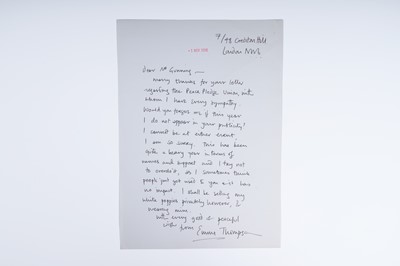 London NW6
Dear Mr
Many thanks for your letter
regarding the Peace Pledge Union, with
whom I have every sympathy.
Would you forgive me if this year
I do not appear in your publicity?
I cannot be at either event
I am so sorry. This has been
quite a heavy year in terms of
and support and I try not
to overdo it, as I sometimes think
people just get used to you and it has
no impact. I shall be selling my
white poppies privately however, &
wearing mine.
With every good & peaceful
wish from Emma Thompson